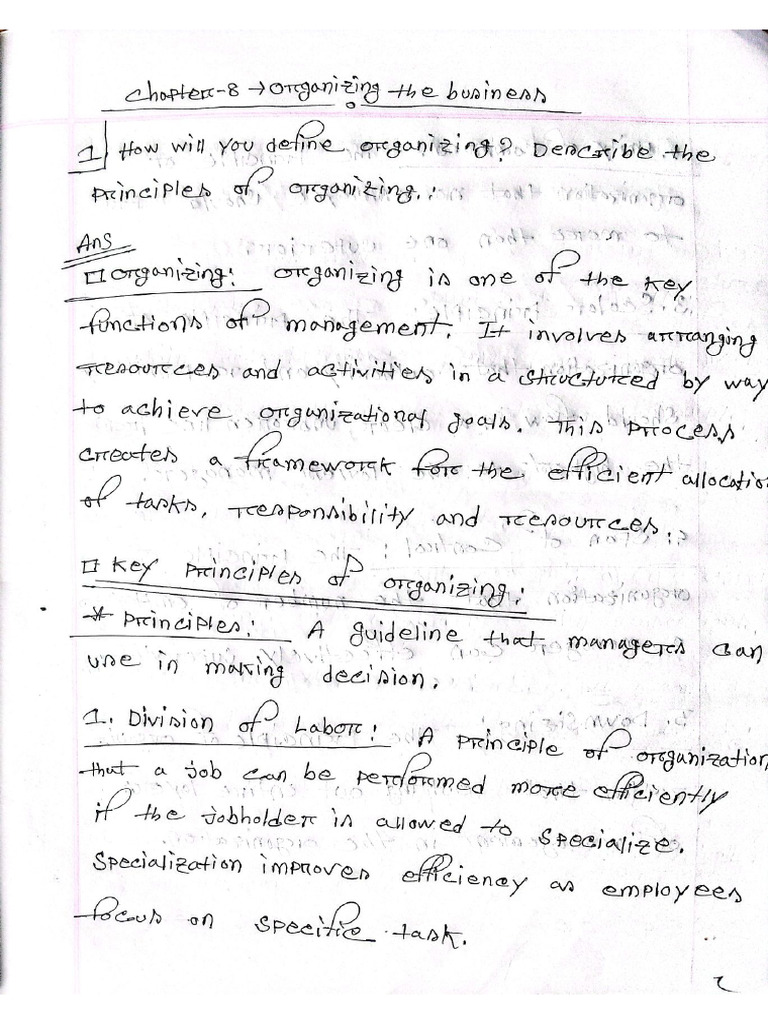 Chapter-8 → Organizing the business
1. How will you define organizing? Describe the
principles of organizing.:
Ans
□ Organizing: Organizing is one of the key
functions of management. It involves arranging
resources and activities in a structured by way
to achieve organizational goals. This process
creates a framework for the efficient allocation
of tasks, responsibility and resources.
□ Key Principles of organizing:
* Principles: A guideline that managers can
use in making decision.
1. Division of Labor: A principle of organization
that a job can be performed more efficiently
if the jobholder is allowed to specialize.
Specialization improves efficiency as employees
focus on specific task.